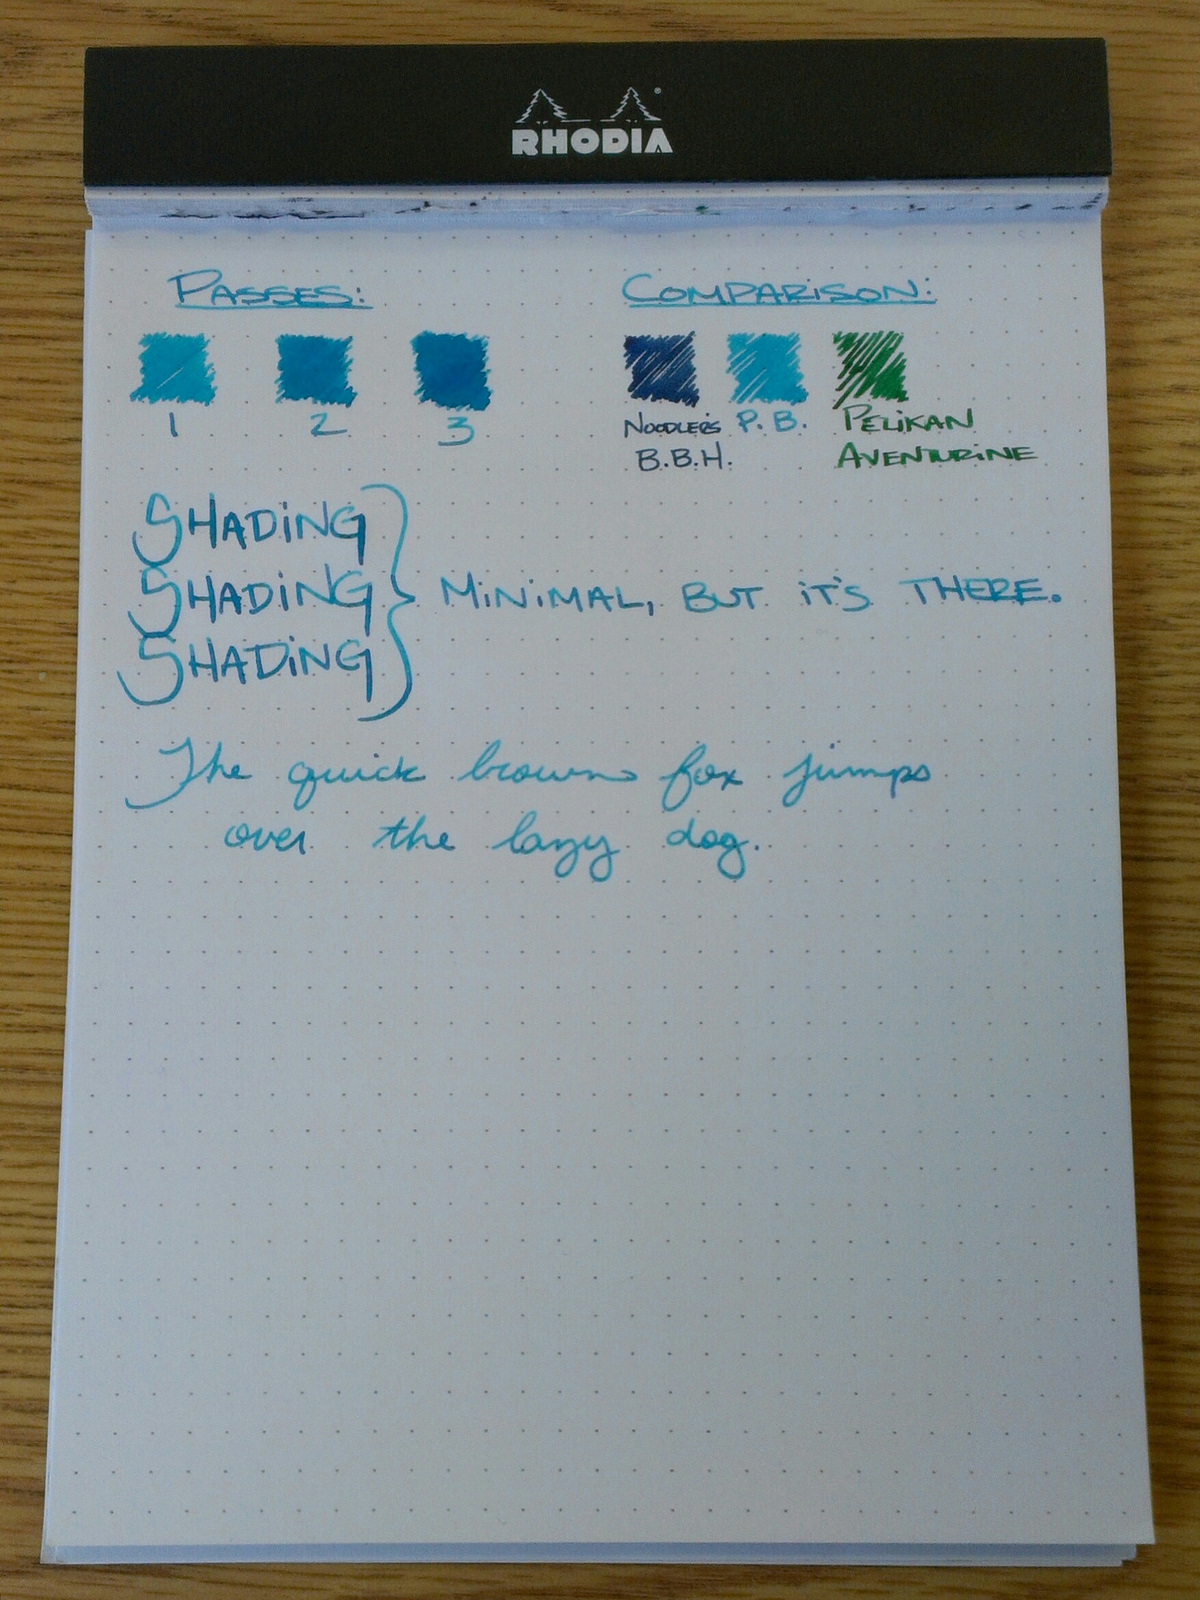 RHODIA
PASSES:
1 2 3
COMPARISON:
NOODLER'S P.B. PELIKAN
B.B.H. AVENTURINE
SHADING
SHADING
SHADING
MINIMAL, BUT IT'S THERE.
The quick brown fox jumps
over the lazy dog.